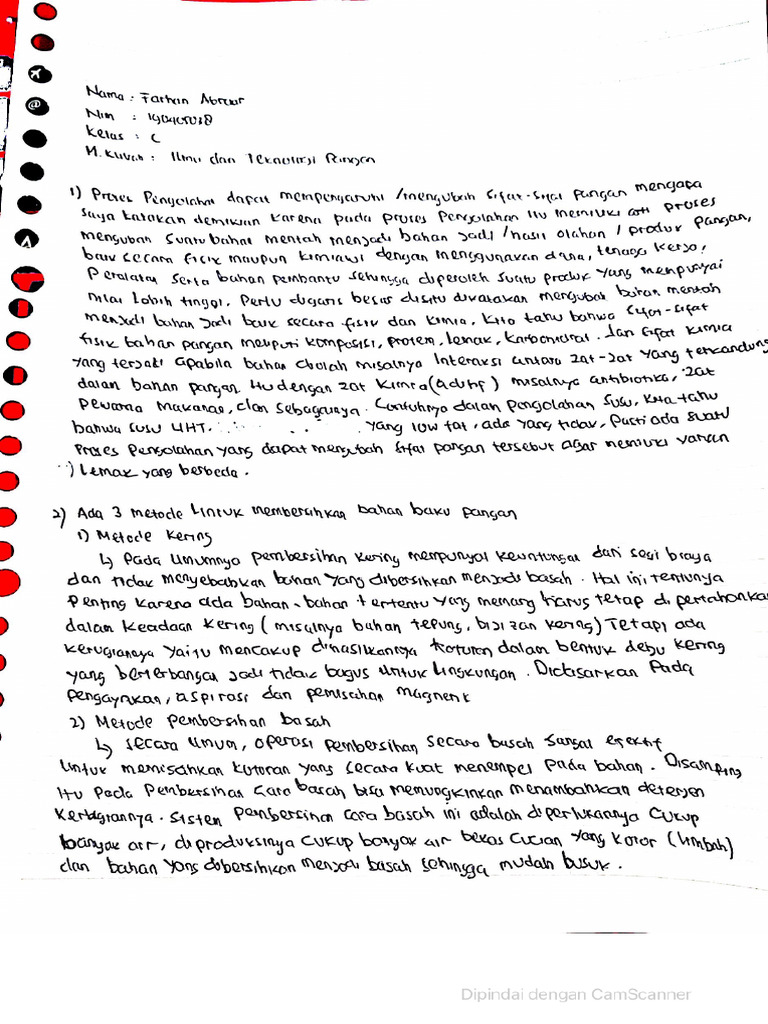 Nama : Farhan Abrar
Nim :
Kelas : C
M. Kuliah : Ilmu dan Teknologi Pangan
1) Proses Pengolahan dapat mempengaruhi /mengubah sifat-sifat pangan mengapa
saya katakan demikian karena pada proses Pengolahan itu memiliki arti proses
mengubah suatu bahan mentah menjadi bahan jadi /hasil olahan / produk pangan,
baik secara fisik maupun kimiawi dengan menggunakan dana, tenaga kerja,
Peralatan serta bahan pembantu sehingga diperoleh suatu produk yang mempunyai
nilai lebih tinggi. Perlu digaris besar disitu dikatakan mengubah bahan mentah
menjadi bahan jadi baik secara fisik dan kimia, kita tahu bahwa sifat-sifat
fisik bahan pangan meliputi komposisi, protein, lemak, karbohidrat. dan sifat kimia
yang terjadi apabila bahan diolah misalnya Interaksi antara zat-zat yang terkandung
dalam bahan pangan itu dengan zat kimia (aditif) misalnya antibiotika, zat
Pewarna Makanan, dan sebagainya. Contohnya dalam Pengolahan susu, kita tahu
bahwa susu UHT. yang low fat, ada yang tidak, Pasti ada suatu
Proses Pengolahan yang dapat mengubah sifat pangan tersebut agar memiliki varian
) lemak yang berbeda.
2) Ada 3 metode Untuk membersihkan bahan baku pangan
1) Metode Kering
↳ Pada Umumnya pembersihan kering mempunyai keuntungan dari segi biaya
dan tidak menyebabkan bahan yang dibersihkan menjadi basah. Hal ini tentunya
Penting karena ada bahan-bahan tertentu yang memang harus tetap di pertahankan
dalam keadaan kering (misalnya bahan tepung, bijizan kering) Tetapi ada
kerugiannya yaitu mencakup dihasilkannya kotoran dalam bentuk debu kering
yang berterbangan jadi tidak bagus untuk lingkungan. Didasarkan Pada
Pengayakan, aspirasi dan pemisahan magnent
2) Metode Pembersihan basah
↳ Secara Umum, operasi pembersihan secara basah sangat efektif
Untuk memisahkan kotoran yang secara kuat menempel pada bahan. Disamping
itu Pada Pembersihan cara basah bisa memungkinkan menambahkan deterjen
Kerugiannya. Sistem Pembersihan cara basah ini adalah diperlukannya Cukup
banyak air, diproduksinya cukup banyak air bekas cucian yang kotor (limbah)
dan bahan yang dibersihkan menjadi basah sehingga mudah busuk.
Dipindai dengan CamScanner